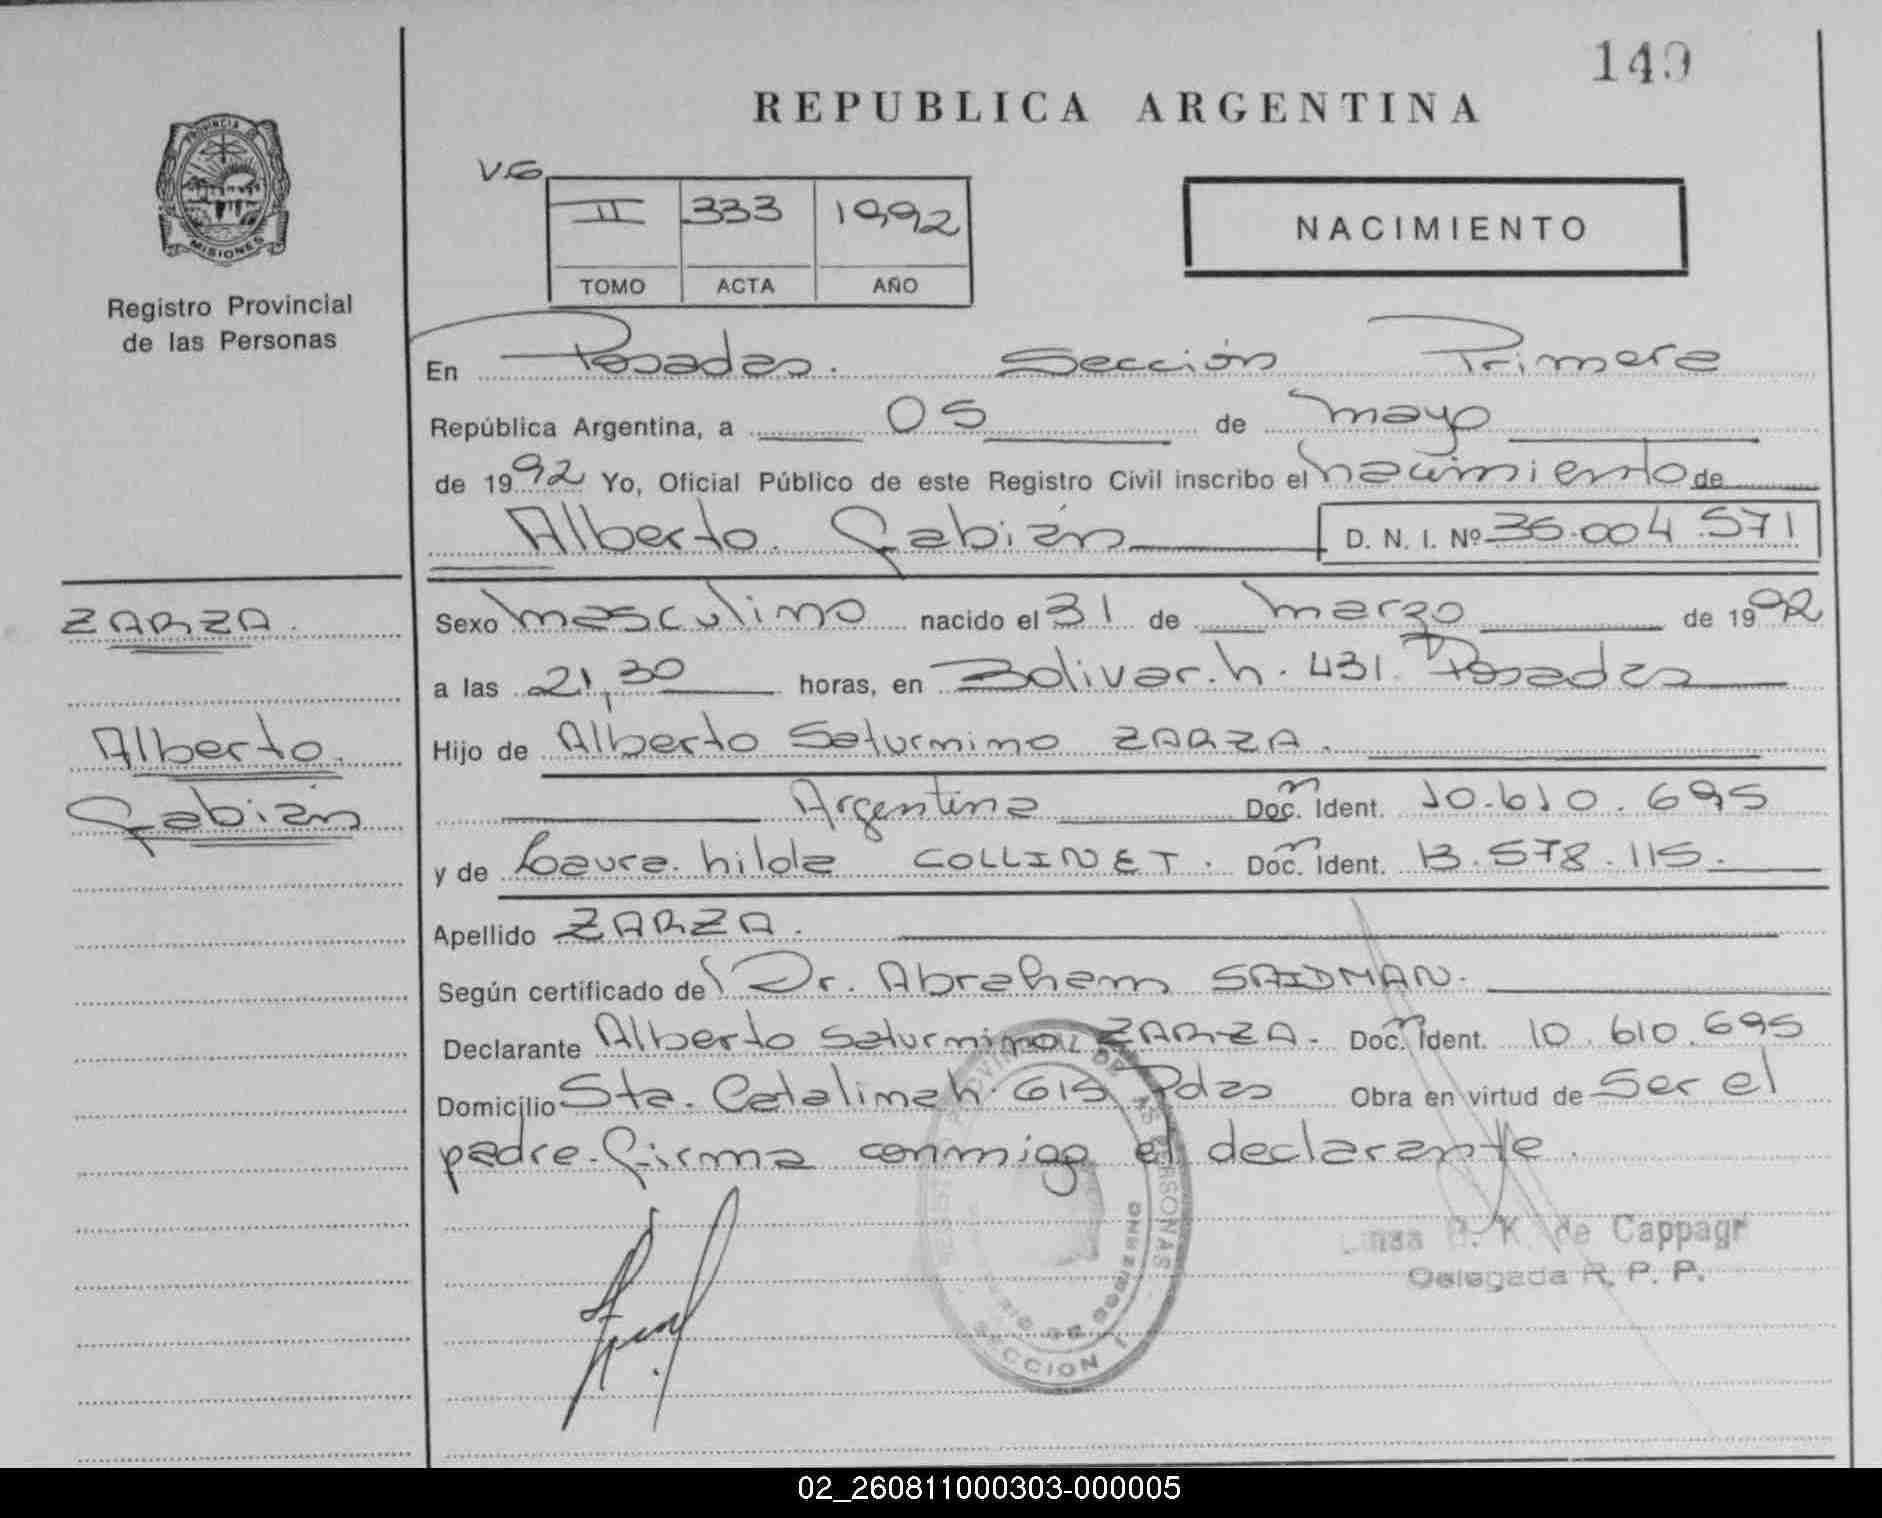 149
REPUBLICA ARGENTINA
V.G
II 333 1992
TOMO ACTA AÑO
NACIMIENTO
PROVINCIA DE
MISIONES
Registro Provincial
de las Personas
En Posadas. Sección Primera
República Argentina, a 05 de mayo
de 1992 Yo, Oficial Público de este Registro Civil inscribo el nacimiento de
Alberto Fabián D. N. I. Nº 36.004.571
ZARZA.
Alberto
Fabián
Sexo masculino nacido el 31 de marzo de 1992
a las 21,30 horas, en Bolivar. h. 431. Posadas
Hijo de Alberto Saturnino ZARZA.
Argentina Doc. Ident. 10.610.695
y de Laura. hilda COLLINET. Doc. Ident. 13.578.115.
Apellido ZARZA.
Según certificado del Dr. Abraham SAIDMAN.
Declarante Alberto Saturnino ZARZA. Doc. Ident. 10.610.695
Domicilio Sta. Catalina h. 615 Pdas Obra en virtud de Ser el
padre. firma conmigo el declarante.
K. de Cappagr
Delegada R. P. P.
SECCION 1
02_260811000303-000005